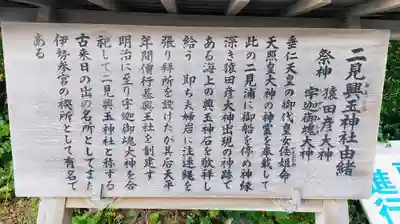 二見興玉神社由緒
祭神 猿田彦大神
宇迦御魂大神
垂仁天皇の御代皇女倭姫命
天照皇大神の神霊を奉戴して
此の二見浦に御船を停め神縁
深き猿田彦大神出現の神跡で
ある海上の興玉神石を敬拝し
給う 即ち夫婦岩に注連縄を
張り拝所を設けたが其后天平
年間僧行基興玉社を創建す
明治に至り宇迦御魂大神を合
祀して二見興玉神社と称する
古来日の出の名所としてまた
伊勢参宮の禊所として有名で
ある
進行